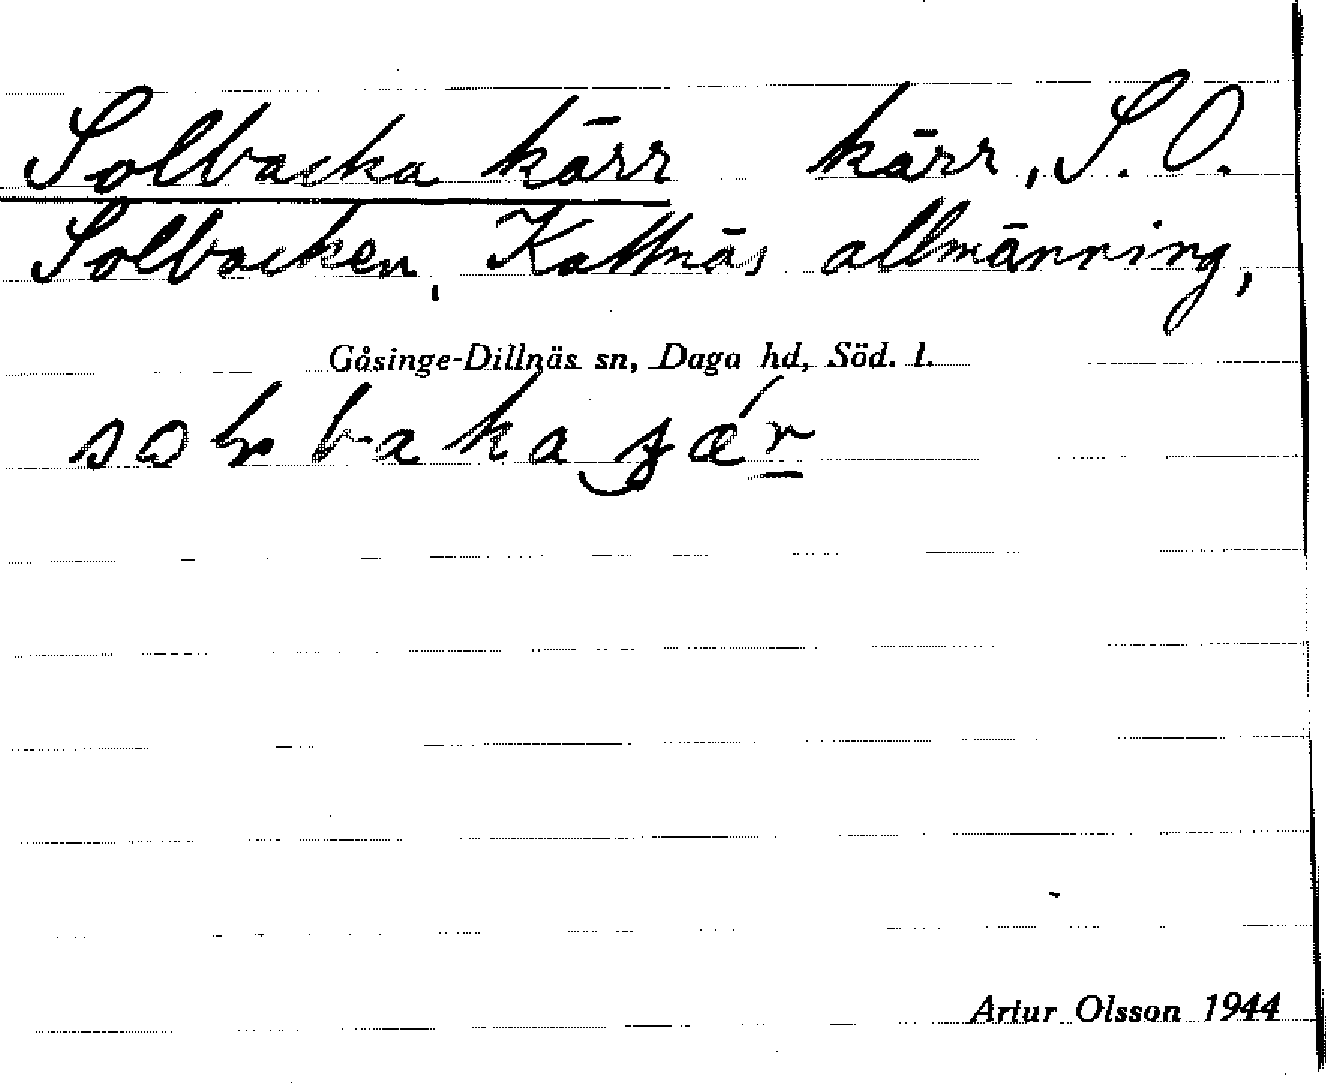 Solbacka kärr kärr, S.O.
Solbacken, Kattnäs allmänning,
Gåsinge-Dillnäs sn, Daga hd, Söd. l.
Artur Olsson 1944